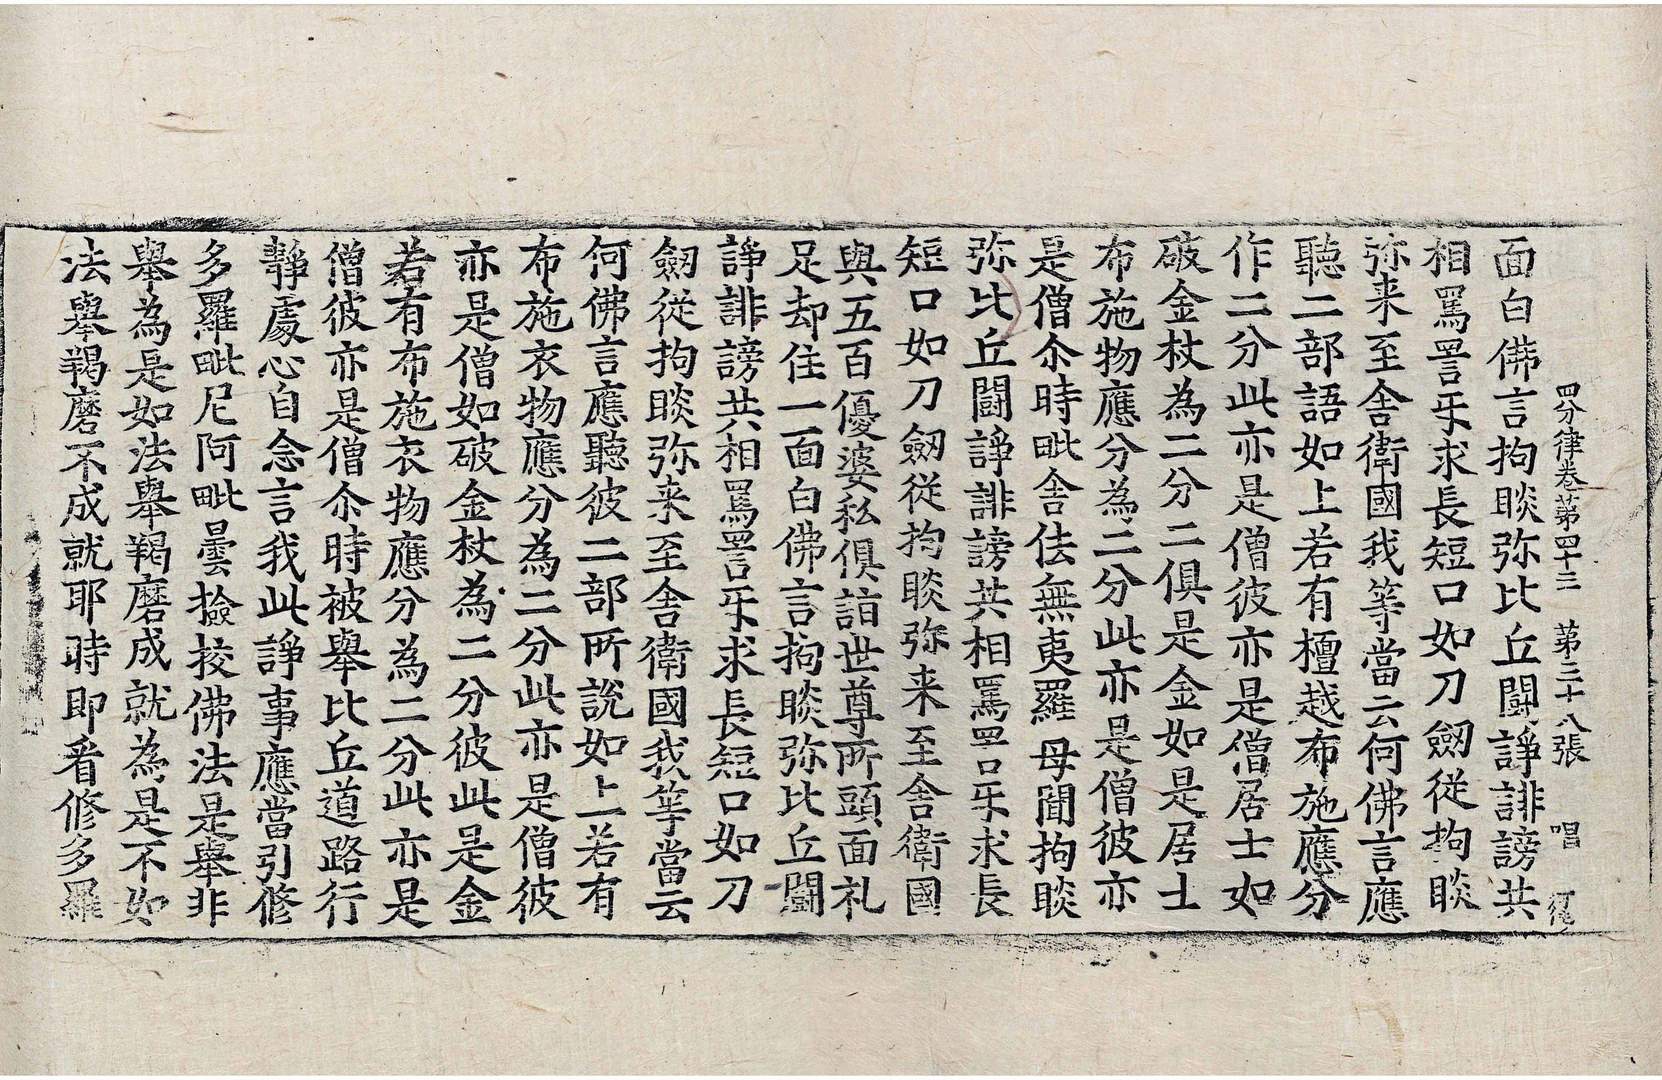 四分律卷第四十三 第三十八張 唱
面白佛言拘睒弥比丘闘諍誹謗共
相罵詈㸦求長短口如刀劔從拘睒
弥来至舍衛國我等當云何佛言應
聽二部語如上若有檀越布施應分
作二分此亦是僧彼亦是僧居士如
破金杖為二分二俱是金如是居士
布施物應分為二分此亦是僧彼亦
是僧尒時毗舍佉無夷羅母聞拘睒
弥比丘闘諍誹謗共相罵詈㸦求長
短口如刀劔從拘睒弥来至舍衛國
與五百優婆私俱詣世尊所頭面礼
足却住一面白佛言拘睒弥比丘闘
諍誹謗共相罵詈㸦求長短口如刀
劔從拘睒弥来至舍衛國我等當云
何佛言應聽彼二部所說如上若有
布施衣物應分為二分此亦是僧彼
亦是僧如破金杖為二分彼此是金
若有布施衣物應分為二分此亦是
僧彼亦是僧尒時被舉比丘道路行
静處心自念言我此諍事應當引修
多羅毗尼阿毗曇撿挍佛法是舉非
舉為是如法舉羯磨成就為是不如
法舉羯磨不成就耶時即看修多羅